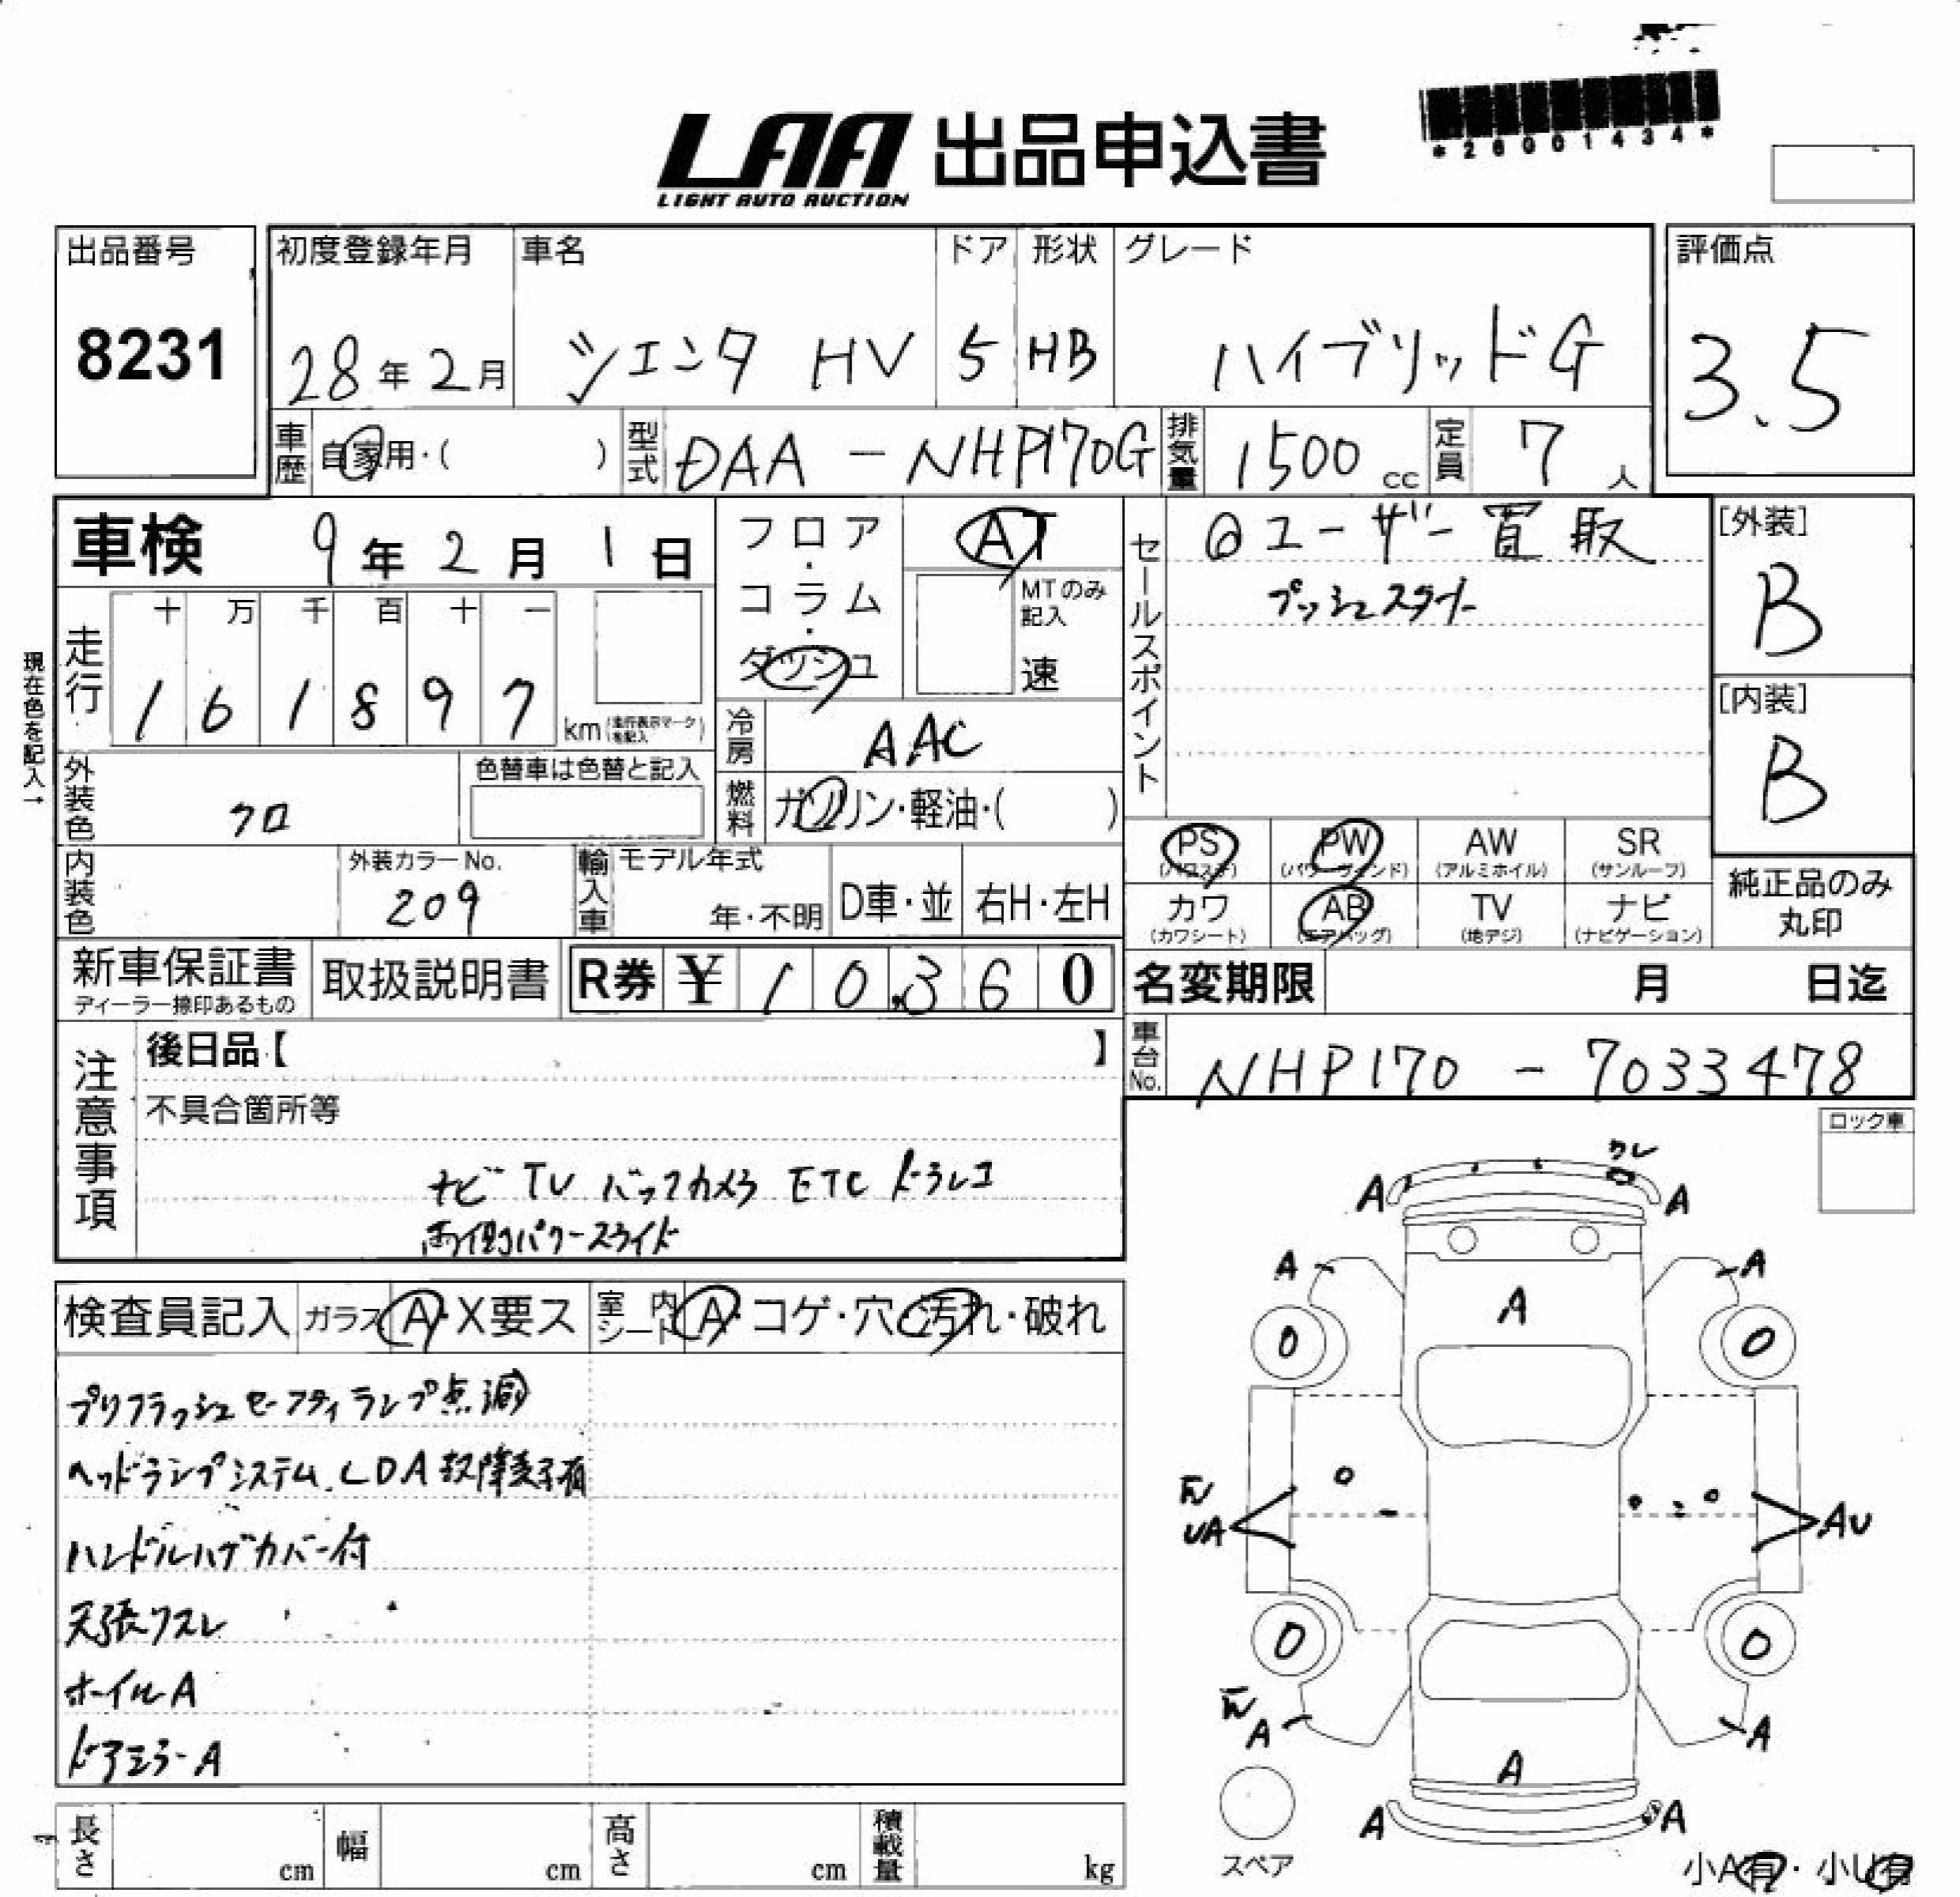 *26001434*
LAA 出品申込書
LIGHT AUTO AUCTION
出品番号 初度登録年月 車名 ドア 形状 グレード 評価点
8231 28年2月 シエンタ HV 5 HB ハイブリッドG 3.5
車歴 自家用・( ) 型式 DAA-NHP170G 排気量 1500cc 定員 7人
車検 9年2月1日 フロア・コラム・ダッシュ AT セールスポイント ◎ユーザー買取 [外装]
MTのみ記入 速 プッシュスタート B
現在色を記入→ 走行 十 万 千 百 十 一
1 6 1 8 9 7 km(走行表示マークを記入) [内装]
冷房 AAC B
外装色 クロ 色替車は色替と記入 燃料 ガソリン・軽油・( )
PS(パワステ) PW(パワーウィンド) AW(アルミホイル) SR(サンルーフ)
内装色 外装カラーNo. 209 輸入車 モデル年式 年・不明 D車・並 右H・左H
カワ(カワシート) AB(エアバッグ) TV(地デジ) ナビ(ナビゲーション) 純正品のみ丸印
新車保証書 ディーラー捺印あるもの 取扱説明書 R券 ¥ 10,360 名変期限 月 日迄
注意事項 後日品【 】 車台No. NHP170-7033478
不具合箇所等 ロック車
ナビ TV バックカメラ ETC ドラレコ
両側パワースライド
検査員記入 ガラス A・X要ス 室内シート A・コゲ・穴・汚れ・破れ
プリクラッシュセーフティランプ点滅
ヘッドランプシステム.LDA故障表示有
ハンドルハゲカバー付
天張ウスレ
ホイルA
ドアミラーA
ワレ
A A
A A
A
0 0
UA AU
0 0
A A
A
A A
スペア
小A有・小U有
長さ cm 幅 cm 高さ cm 積載量 kg